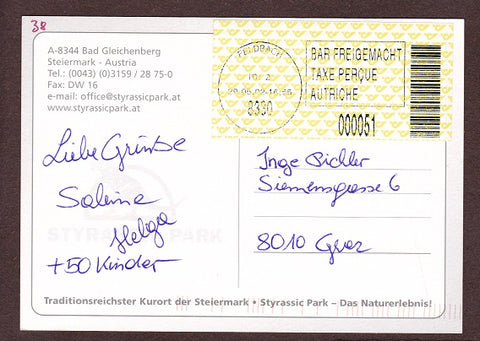 38
A-8344 Bad Gleichenberg
Steiermark - Austria
Tel.: (0043) (0)3159 / 28 75-0
Fax: DW 16
e-mail: office@styrassicpark.at
www.styrassicpark.at
FELDBACH
8330
BAR FREIGEMACHT
TAXE PERÇUE
AUTRICHE
000051
Liebe Grüsse
Sabine
Helga
+50 Kinder
STYRASSIC PARK
Inge Pichler
Siemensgasse 6
8010 Graz
Traditionsreichster Kurort der Steiermark • Styrassic Park – Das Naturerlebnis!